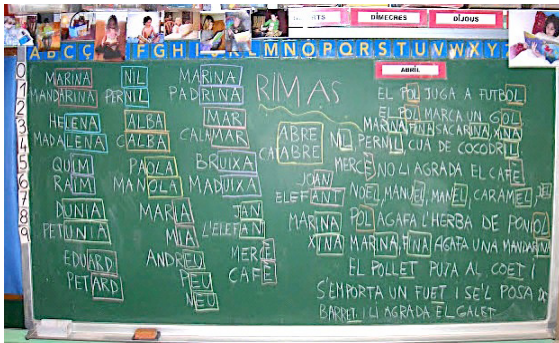 DIMECRES
DIJOUS
ABCÇ
FGH
MNOPQRSTUVWXYZ
ABRIL
0
1
2
3
4
5
6
7
8
9
MARINA
MANDARINA
HELENA
MADALENA
QUIM
RAIM
DUNIA
PETUNIA
EDUARD
PETARD
NIL
PERNIL
ALBA
CALBA
PAOLA
MANOLA
MARIA
MIA
ANDREU
PEU
NEU
MARINA
PADRINA
MAR
CALAMAR
BRUIXA
MADUIXA
JAN
L'ELEFAN
MERCÈ
CAFÈ
RIMAS
ABRE
CABRE
JOAN
ELEFANT
MARINA
XINA
EL POL JUGA A FUTBOL
EL POL MARCA UN GOL
MARINA FINA SACARINA XINA
NIL PERNIL CUA DE COCODRIL
MERCÈ NO LI AGRADA EL CAFÈ
NOEL, MANUEL, MANEL, CARAMEL,
POL AGAFA L'HERBA DE PONIOL
MARINA, FINA AGAFA UNA MANDARINA
EL POLLET PUJA AL COET I
S'EMPORTA UN FUET I SE'L POSA DE
BARRET I LI AGRADA EL GALET